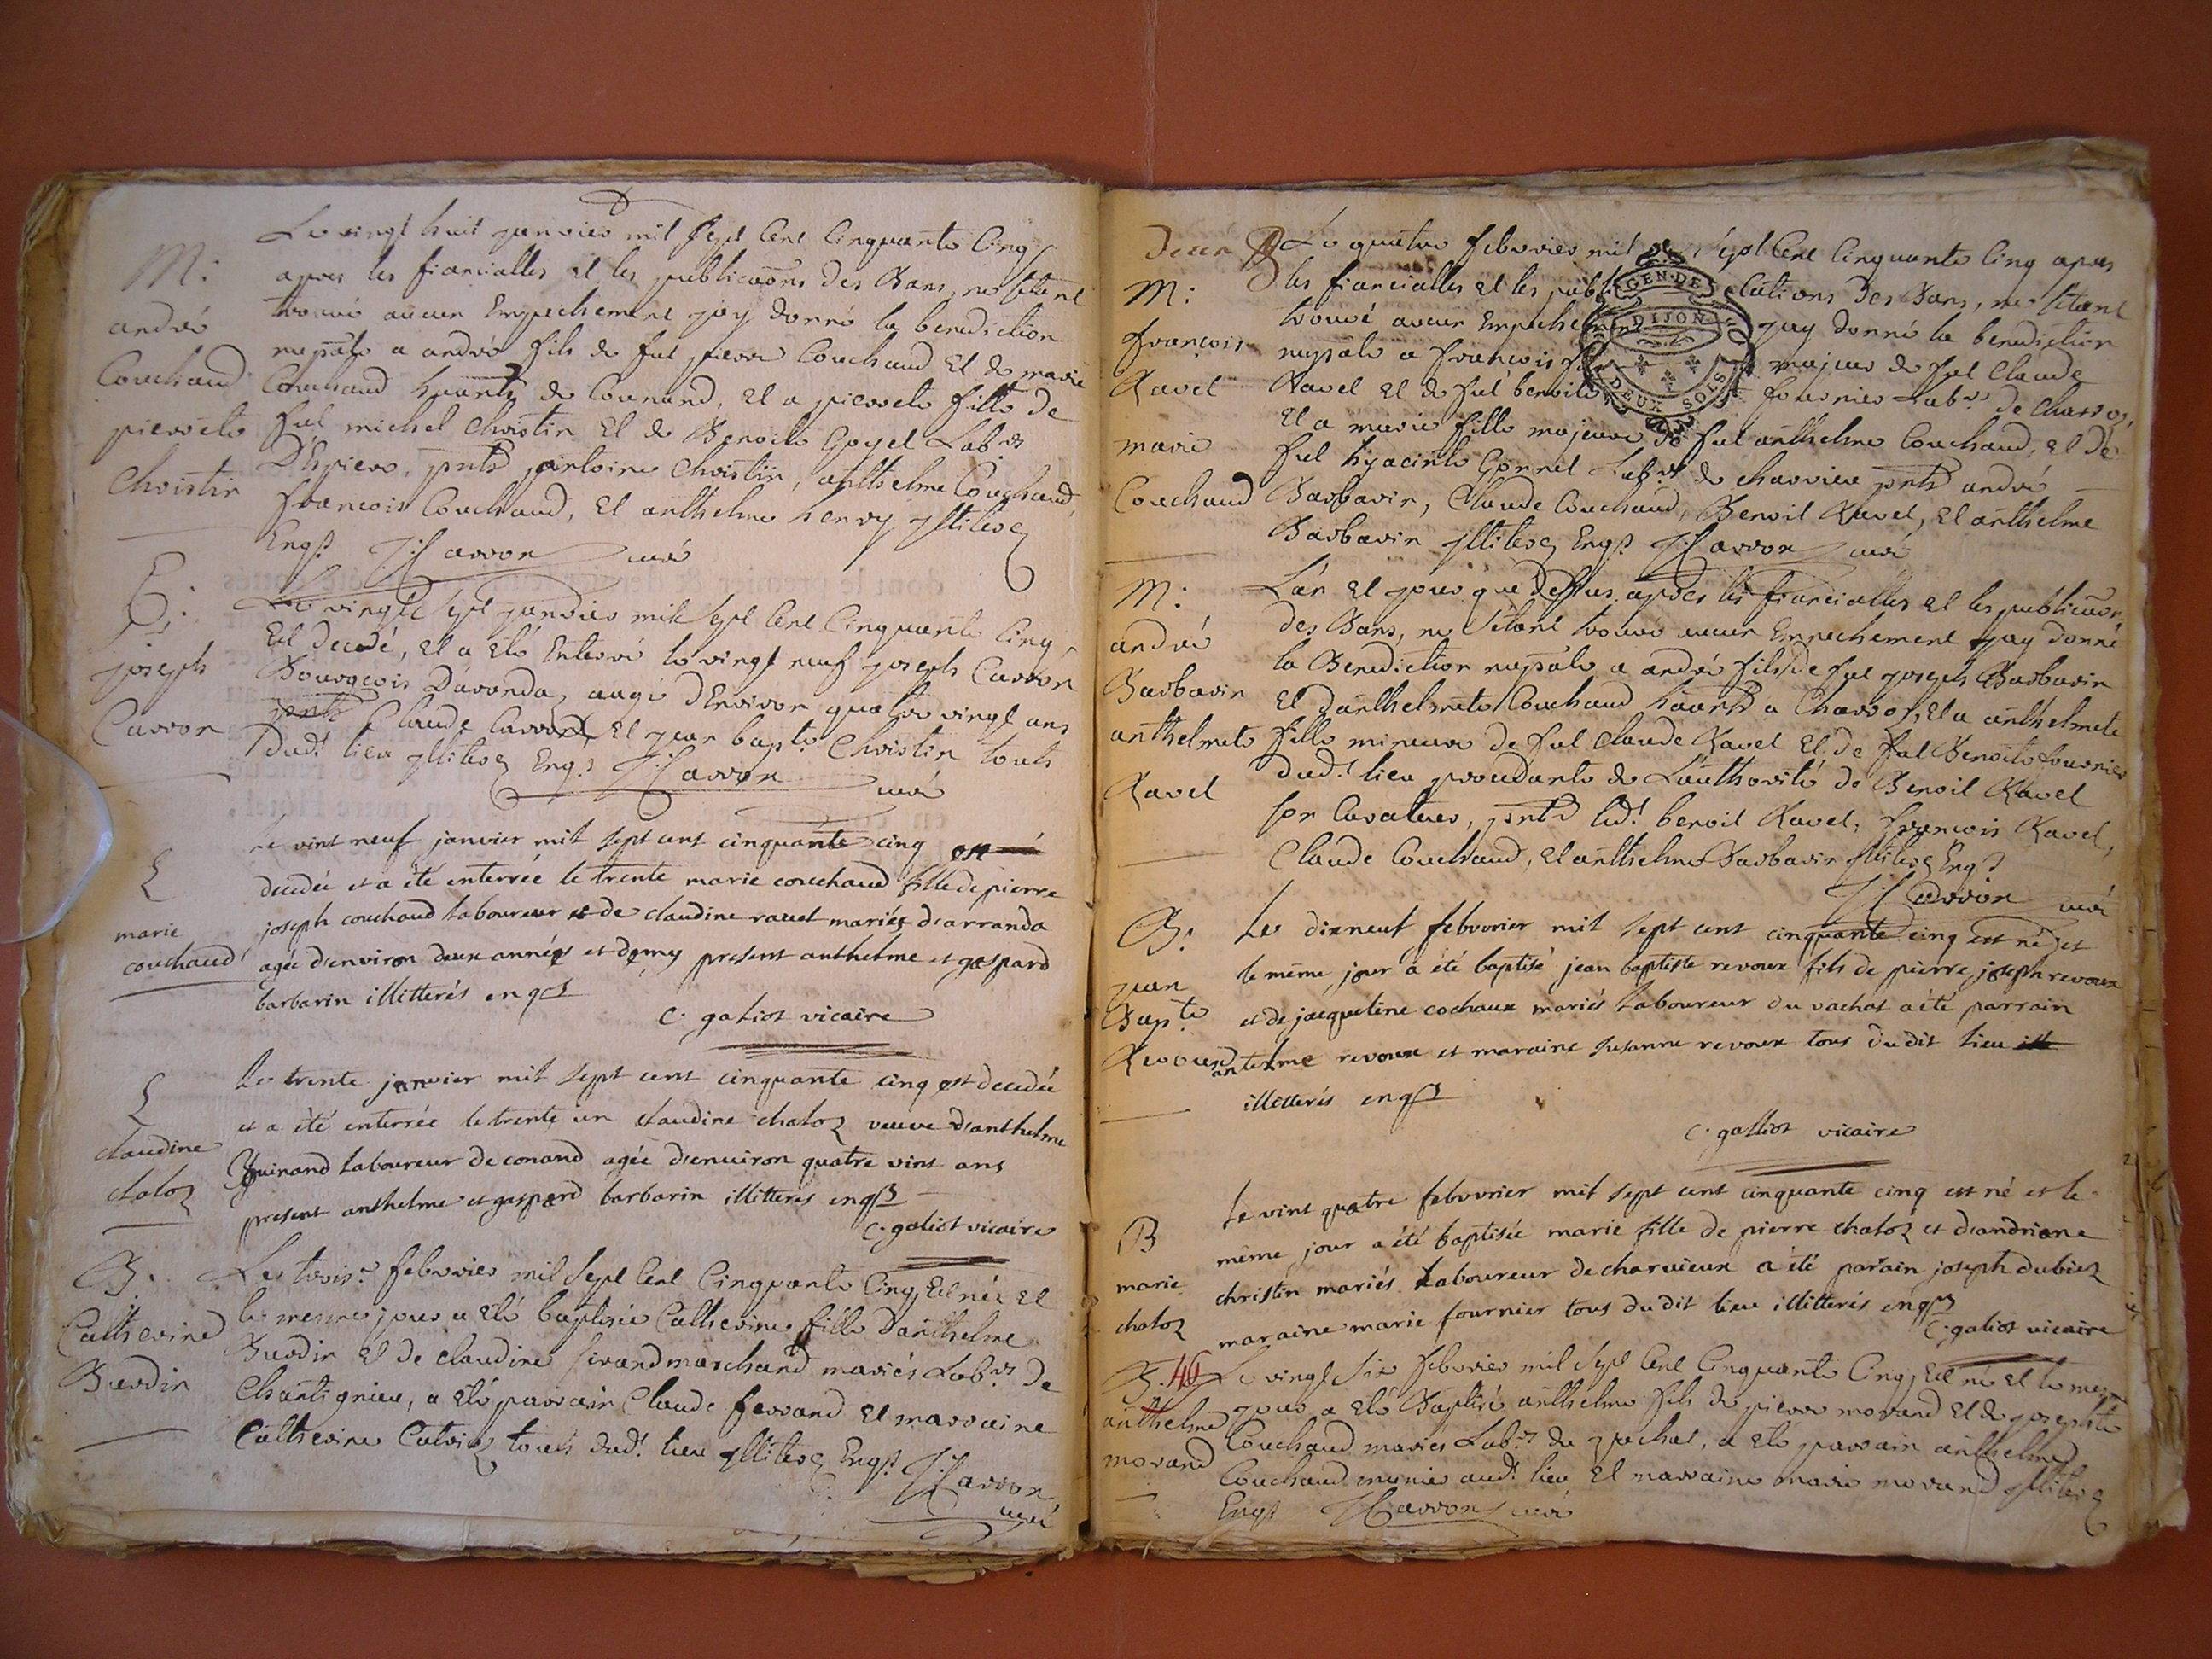 M:
andré
Couchand
pierrete
Christin
Le vingt huit janvier mil sept Cent Cinquante Cinq
apres les fiancialles et les publicaõns des Bans, ne s'etant
trouvé aucun Empechement jay donné la benediction
nupãle a andré fils de fut pierre Couchand et de marie
Couchand hãants de Counand, et a pierrete fille de
fut michel Christin et de Benoite Goyet Lab.rs
D'Espiere, pñts antoine Christin, anthelme Couchand,
francois Couchand, et anthelme henry illiteres
Enqs J: Carron curé
E:
joseph
Carron
Le vingt sept janvier mil sept Cent Cinquante Cinq
Est decedé, et a eté Enterré le vingt neuf joseph Carron
Bourgeois D'aranda, aagé d'Environ quatre vingt ans
pñts Claude Carron, et jean bapte Christin touts
dud.t lieu illiteres Enq.s J: Carron
curé
E
marie
couchaud
Le vint neuf janvier mil sept cent cinquante cinq est
decedée et a été enterrée le trente marie couchaud fille de pierre
joseph couchaud laboureur et de claudine ravet mariés d'arranda
agée d'environ deux années et demy present anthelme et gaspard
barbarin illitterés enqs
c. galiot vicaire
E
claudine
chaloz
Le trente janvier mil sept cent cinquante cinq est decedée
et a été enterrée le trente un claudine chaloz veuve d'anthelme
guinand laboureur de conand agée d'environ quatre vint ans
present anthelme et gaspard barbarin illitterés enqs
c. galiot vicaire
B:
Catherine
Burdin
Le trois.e febvrier mil sept Cent Cinquante Cinq Est née et
le mesme jour a eté baptisée Catherine fille d'anthelme
Burdin et de claudine marchand mariés Lab.rs de
Chantignieu, a eté parrain Claude ferrand et marraine
Catherine touts dud.t lieu illiteres Enqs J: Carron
curé
M:
françois
Ravet
marie
Couchaud
Le quatre febvrier mil Sept Cent Cinquante Cinq apres
les fiancialles et les publications des Bans, ne s'etant
trouvé aucun Empechement jay donné la benediction
nupãle a francois fils majeur de fut Claude
Ravet et de fut benoite fournier Lab.rs de Charvos,
et a marie fille majeure de fut anthelme Couchaud, et de
fut hyacinte Gonnet Lab.rs de charvieu pñts andré
Barbarin, Claude Couchaud, Benoit Ravet, et anthelme
Barbarin illiteres Enqs J: Carron curé
GEN. DE
DIJON
DEUX SOLS
M:
andré
Barbarin
anthelmete
Ravet
L'an et jour que dessus apres les fiancialles et les publicaons,
des Bans, ne s'etant trouvé aucun Empechement jay donné
la Benediction nupãle a andré fils de fut joseph Barbarin
et d'anthelmete Couchaud hãants a Charvos, et a anthelmete
fille mineure de fut claude Ravet et de fut Benoite fournier
dud.t lieu procedante de L'authorité de Benoit Ravet
son Curateur, pñts led.t benoit Ravet, francois Ravet,
Claude Couchaud, et anthelme Barbarin illiteres Enqs
J: Carron curé
B:
jean
Bapte
Revoux
Le dixneuf febvvrier mil sept cent cinquante cinq est né et
le même jour a été baptisé jean baptiste revoux fils de pierre joseph revoux
et de jacqueline cochaux mariés laboureur du vachat a été parrain
antelme revoux et maraine susanne revoux tous du dit lieu
illitterés enqs
c. galliot vicaire
B
marie
chaloz
Le vint quatre febvvrier mil sept cent cinquante cinq est né et le
même jour a été baptisée marie fille de pierre chaloz et d'andriane
christin mariés laboureur de charvieux a été parain joseph dubiez
maraine marie fournier tous du dit lieu illitterés enqs
c. galiot vicaire
B.
anthelme
morand
Le vingt six febvrier mil sept Cent Cinquante Cinq Est né et le mesme
jour a eté Baptisé anthelme fils de pierre morand et de josephte
Couchaud mariés Lab.rs du a eté parrain anthelme
Couchaud munier aud.t lieu et marraine marie morand illiteres
Enqs J: Carron curé